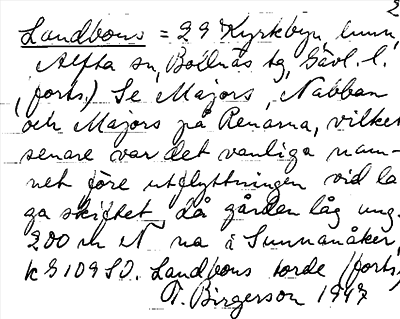 2
Landbous = 29 Kyrkbyn, hmn,
Alfta sn, Bollnäs tg, Gävl. l.
(forts.) Se Majors, Nabban
och Majors på Renarna, vilket
senare var det vanliga nam-
net före utflyttningen vid la
ga skiftet då gården låg ung.
200 m N na i Sunnanåker,
k G 109 SO. Landbous torde (forts)
T. Birgerson 1947